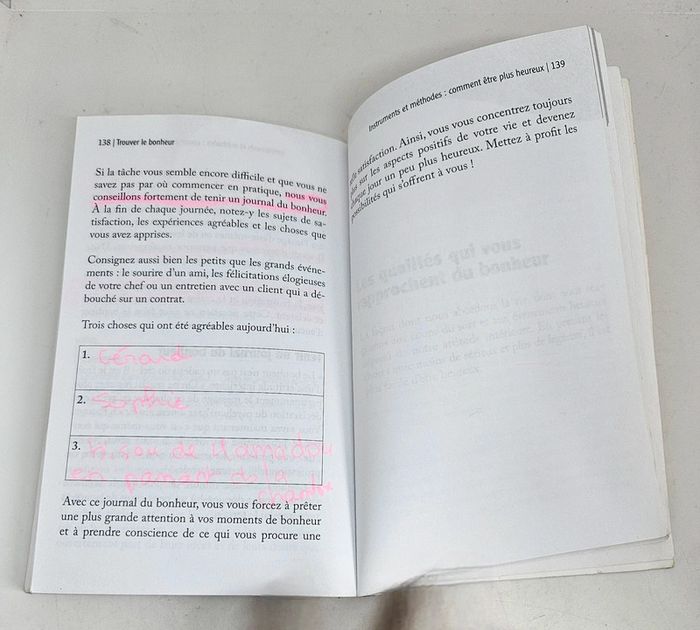 138 | Trouver le bonheur
Si la tâche vous semble encore difficile et que vous ne
savez pas par où commencer en pratique, nous vous
conseillons fortement de tenir un journal du bonheur.
À la fin de chaque journée, notez-y les sujets de sa-
tisfaction, les expériences agréables et les choses que
vous avez apprises.
Consignez aussi bien les petits que les grands événe-
ments : le sourire d'un ami, les félicitations élogieuses
de votre chef ou un entretien avec un client qui a dé-
bouché sur un contrat.
Trois choses qui ont été agréables aujourd'hui :
1. Gérard
2. Sophie
3. bisou de Mamadou
en panant de la
chambre
Avec ce journal du bonheur, vous vous forcez à prêter
une plus grande attention à vos moments de bonheur
et à prendre conscience de ce qui vous procure une
Instruments et méthodes : comment être plus heureux | 139
satisfaction. Ainsi, vous vous concentrez toujours
plus sur les aspects positifs de votre vie et devenez
chaque jour un peu plus heureux. Mettez à profit les
possibilités qui s'offrent à vous !
Les qualités qui vous
rapprochent du bonheur